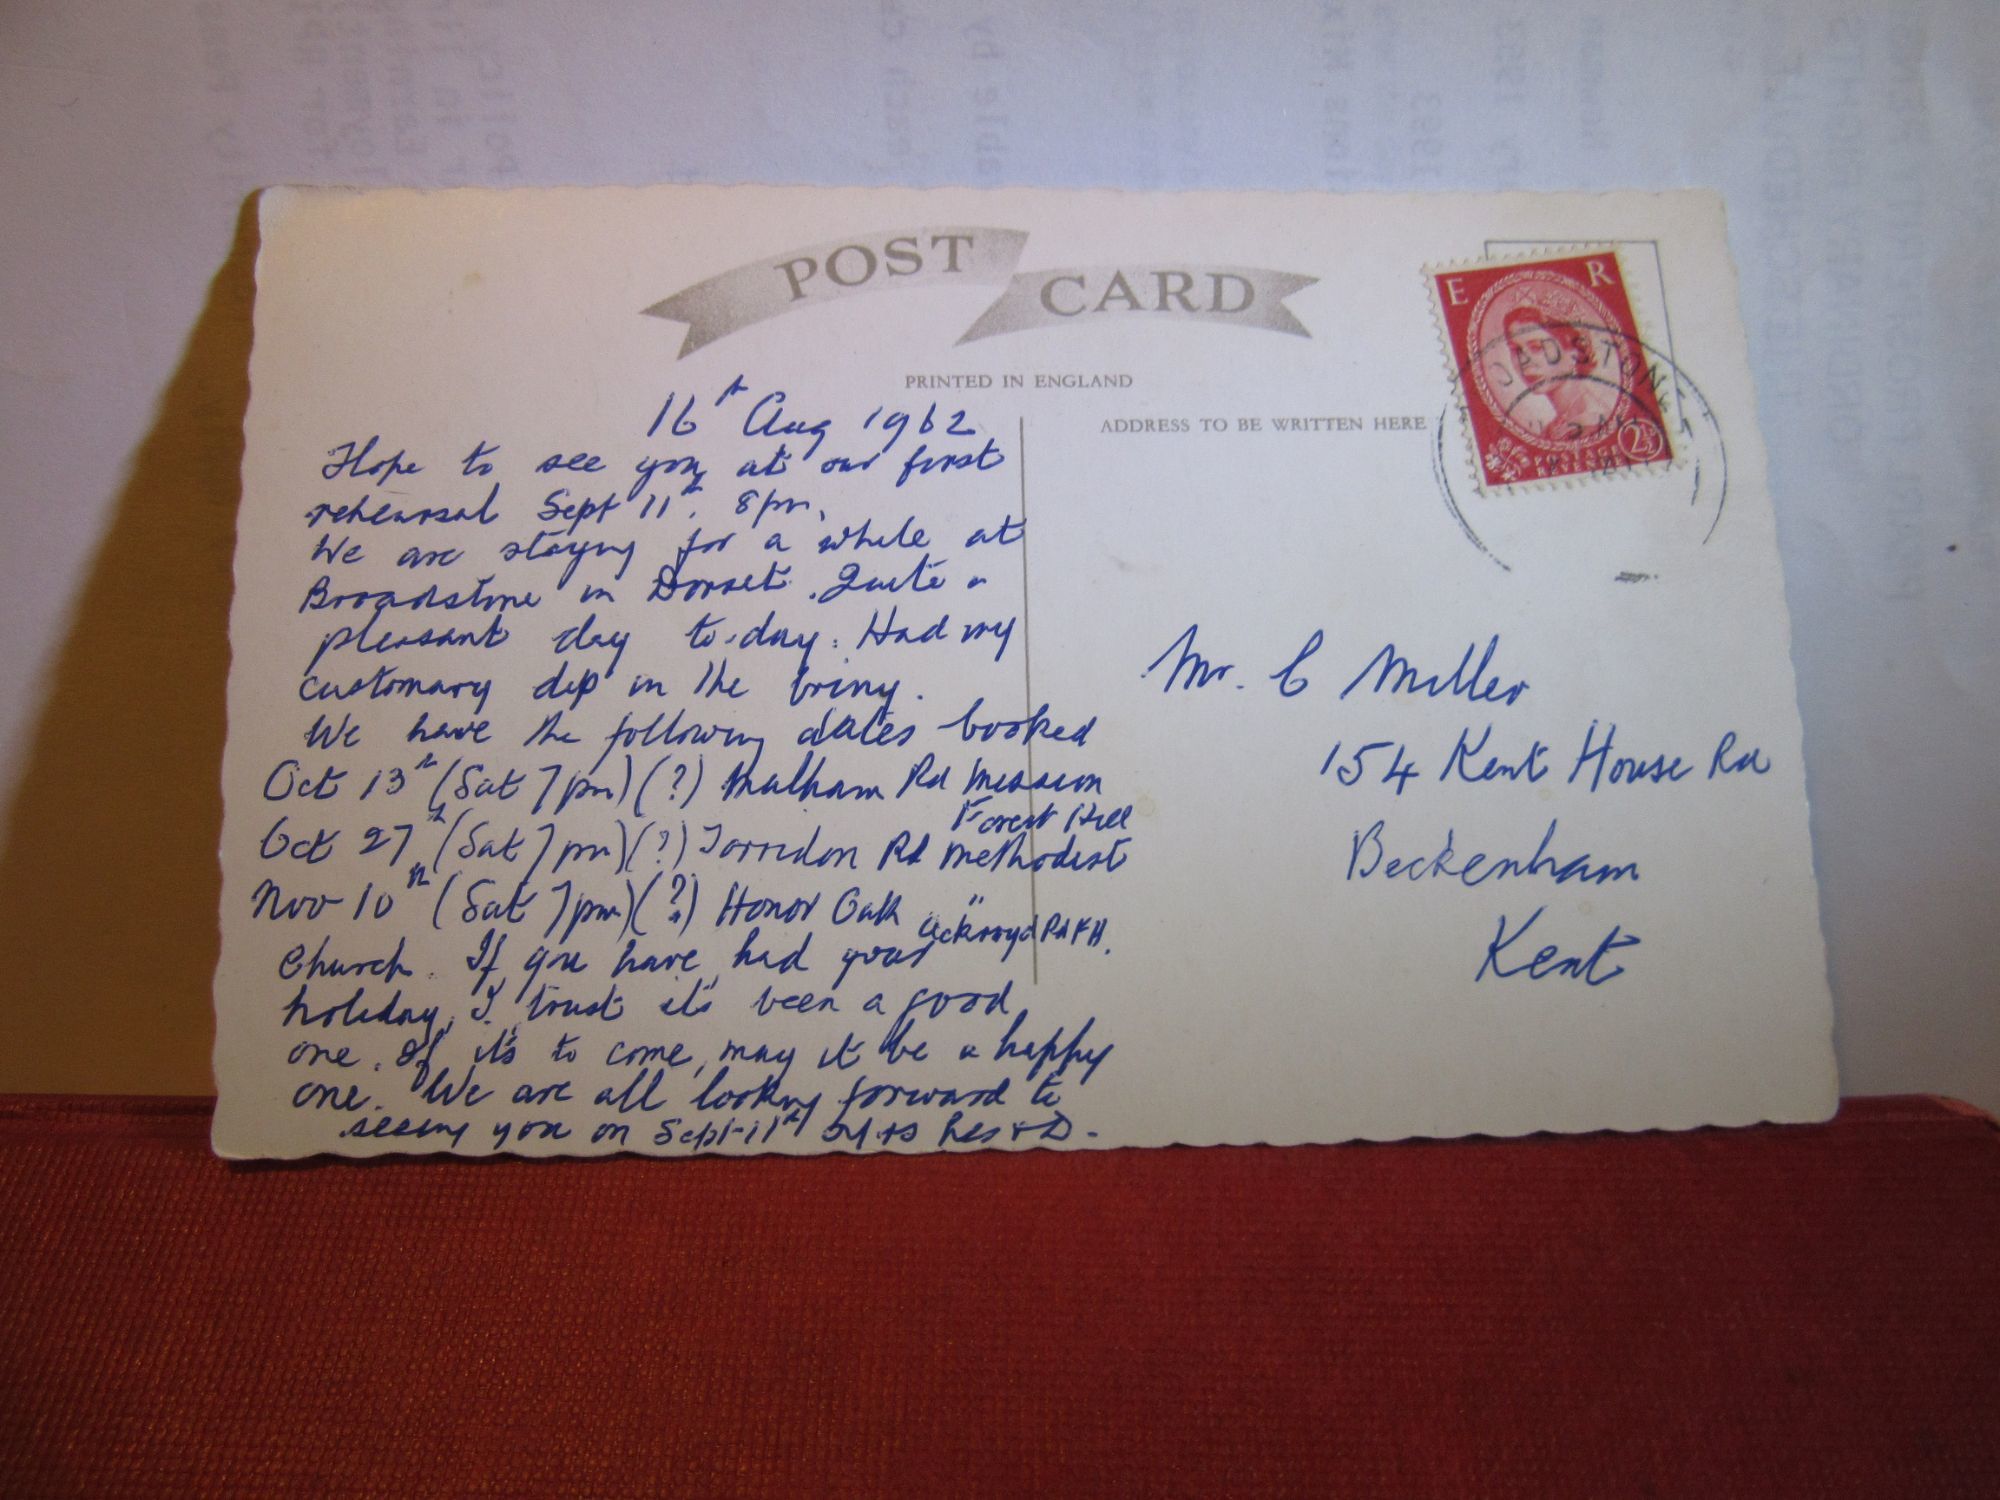 POST CARD
PRINTED IN ENGLAND
ADDRESS TO BE WRITTEN HERE
E R
2½
16th Aug 1962
Hope to see you at our first
rehearsal Sept 11th. 8pm.
We are staying for a while at
Broadstone in Dorset. Quite a
pleasant day to-day. Had my
customary dip in the briny.
We have the following dates booked
Oct 13th (Sat 7pm) (?) Malham Rd Mission
Forest Hill
Oct 27th (Sat 7pm) (?) Torridon Rd Methodist
Nov 10th (Sat 7pm) (?) Honor Oak "
Ackroyd Rd F H.
Church. If you have had your
holiday, I trust it's been a good
one. If it's to come, may it be a happy
one. We are all looking forward to
seeing you on Sept 11th
Mr. C Miller
154 Kent House Rd
Beckenham
Kent